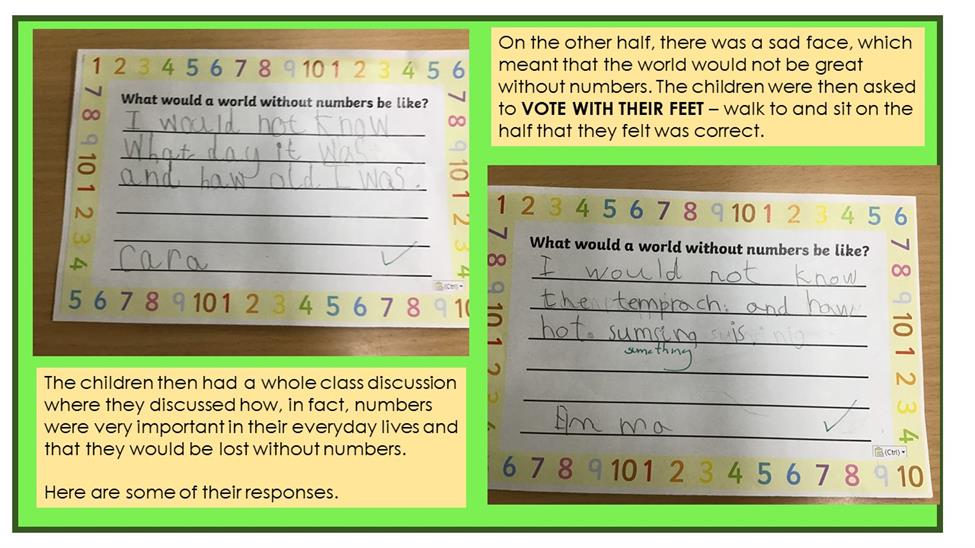 1 2 3 4 5 6 7 8 9 10 1 2 3 4 5 6
7 8 9 10 1 2 3 4
What would a world without numbers be like?
I would not know
What day it was
and haw old I was.
Cara
7 8 9 10 1 2 3 4
(Ctrl)
5 6 7 8 9 10 1 2 3 4 5 6 7 8 9 10
The children then had a whole class discussion
where they discussed how, in fact, numbers
were very important in their everyday lives and
that they would be lost without numbers.
Here are some of their responses.
On the other half, there was a sad face, which
meant that the world would not be great
without numbers. The children were then asked
to VOTE WITH THEIR FEET – walk to and sit on the
half that they felt was correct.
1 2 3 4 5 6 7 8 9 10 1 2 3 4 5 6
7 8 9 10 1 2 3 4
What would a world without numbers be like?
I would not know
the temprach. and haw
hot. sumsing is
something
Emma
7 8 9 10 1 2 3 4
(Ctrl)
6 7 8 9 10 1 2 3 4 5 6 7 8 9 10